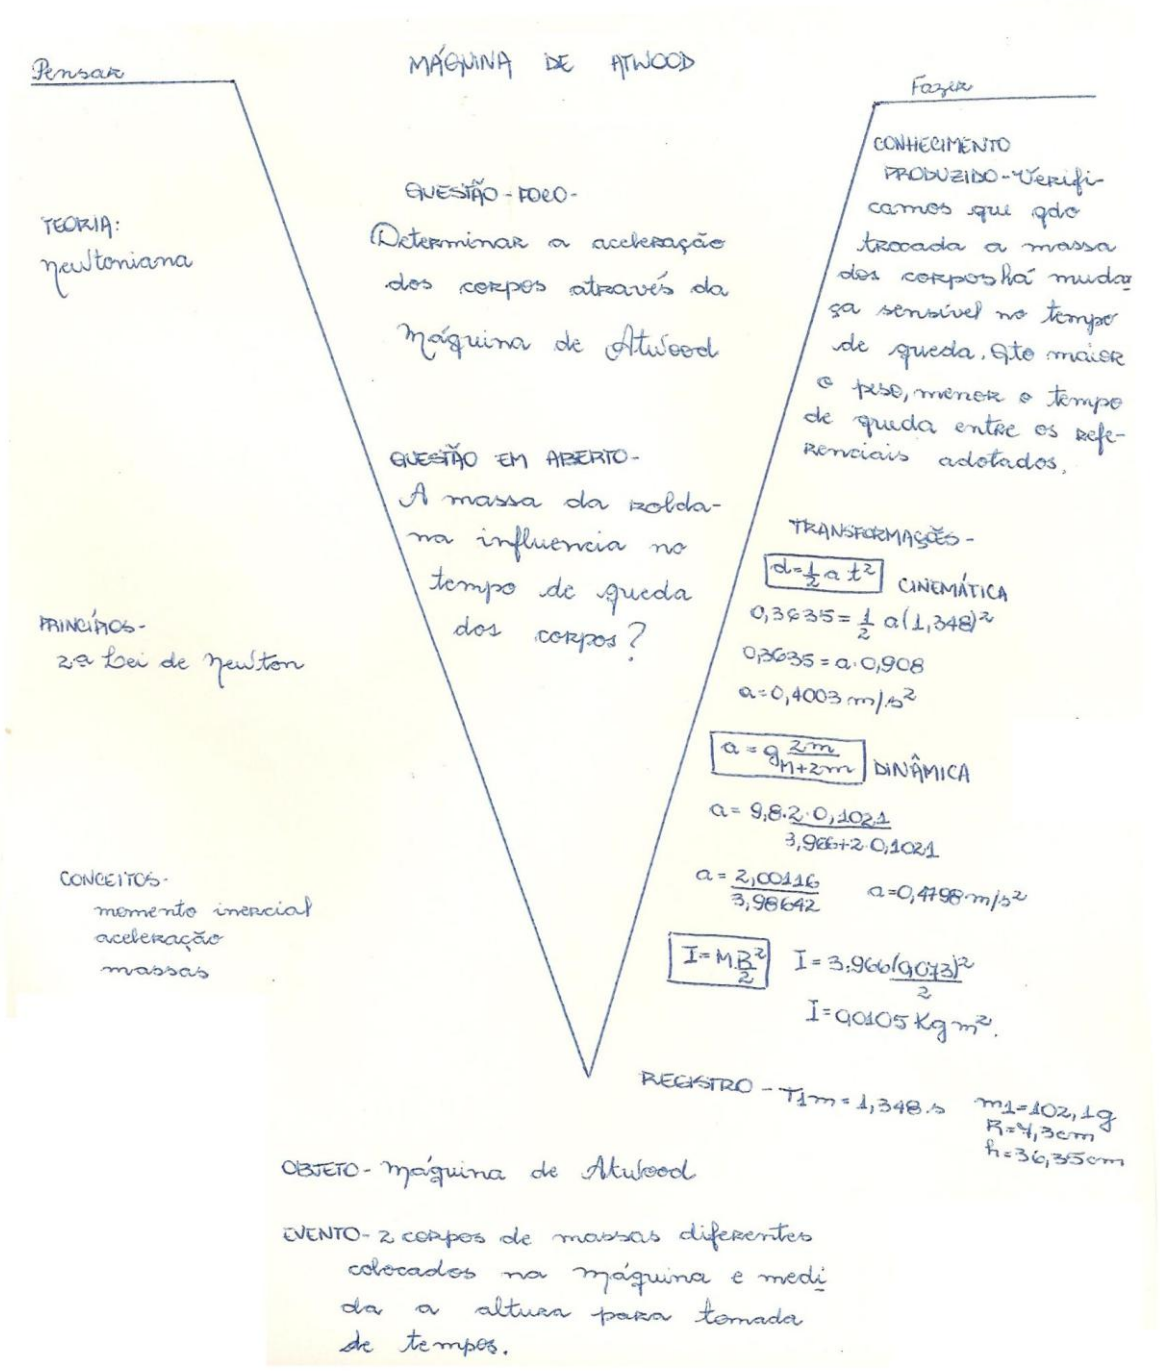 MÁQUINA DE ATWOOD
Pensar
TEORIA:
newtoniana
PRINCÍPIOS-
2ª Lei de Newton
CONCEITOS-
momento inercial
aceleração
massas
QUESTÃO-FOCO-
Determinar a aceleração
dos corpos através da
Máquina de Atwood
QUESTÃO EM ABERTO-
A massa da rolda-
na influencia no
tempo de queda
dos corpos?
Fazer
CONHECIMENTO
PRODUZIDO-Verifi-
camos que qdo
trocada a massa
dos corpos há mudan
ça sensível no tempo
de queda. Qto maior
o peso, menor o tempo
de queda entre os refe-
renciais adotados.
TRANSFORMAÇÕES-
d=½ a t² CINEMÁTICA
0,3635=½ a(1,348)²
0,3635=a.0,908
a=0,4003 m/s²
a = g 2m/M+2m DINÂMICA
a= 9,8.2.0,1021/3,966+2.0,1021
a= 2,00116/3,98642 a=0,4798 m/s²
I=MR²/2 I=3.966(0,073)²/2
I=0,0105 Kg m².
REGISTRO - T1m = 1,348 s m1=102,1g
R=7,3cm
h=36,35cm
OBJETO- máquina de Atwood
EVENTO- 2 corpos de massas diferentes
colocados na máquina e medi
da a altura para tomada
de tempos.